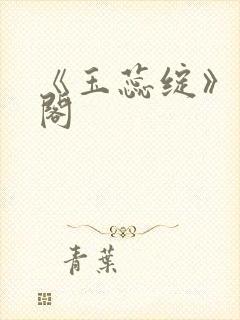 《玉蕊绽》
阁
青葉